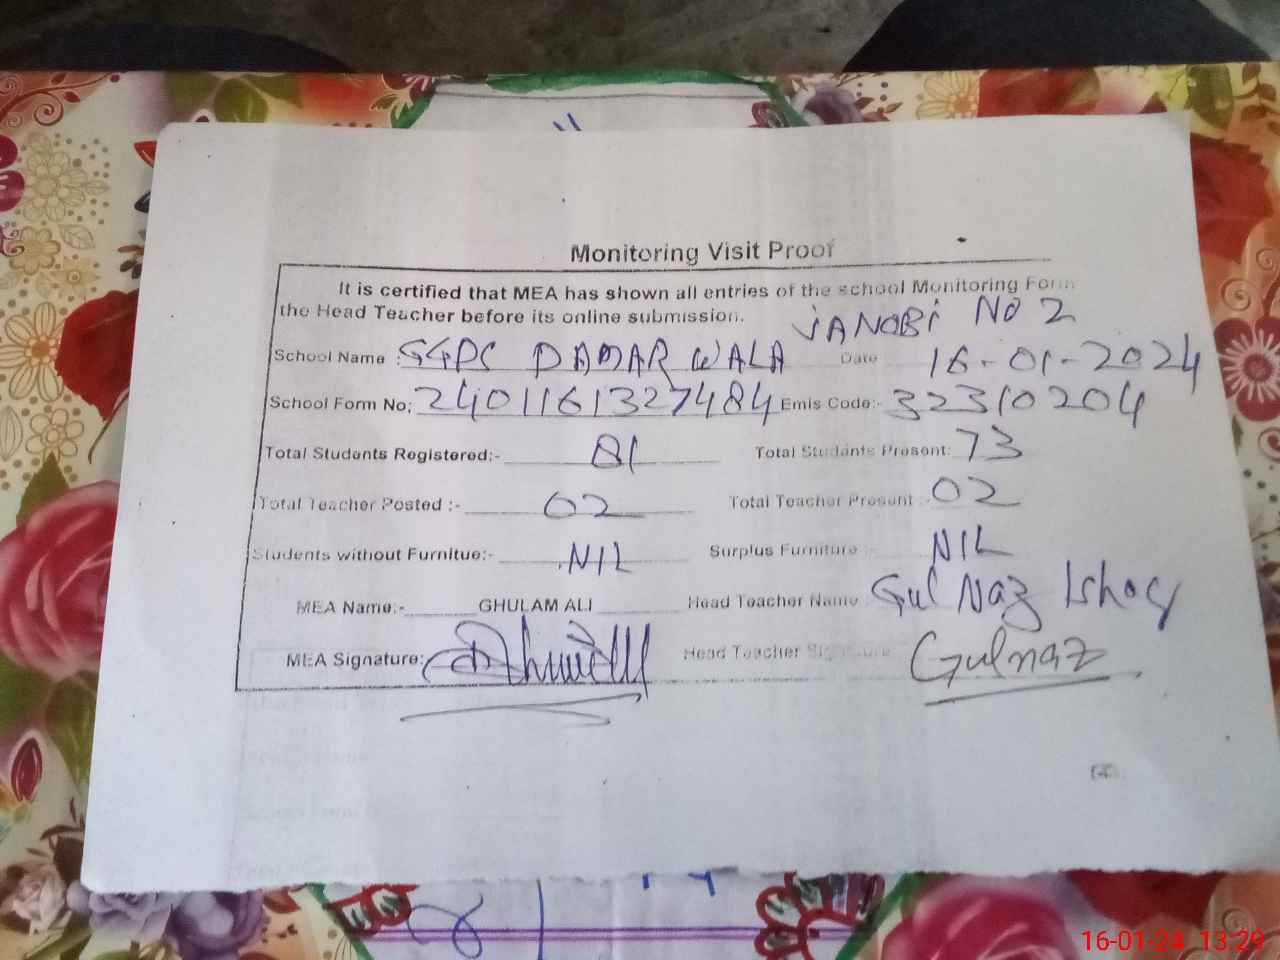 Monitoring Visit Proof
It is certified that MEA has shown all entries of the school Monitoring Form
the Head Teacher before its online submission.
JANOBI No 2
School Name : GGPS DAMAR WALA Date 16-01-2024
School Form No; 2401161327484 Emis Code:- 32310204
Total Students Registered:- 81 Total Students Present: 73
Total Teacher Posted :- 02 Total Teacher Present :- 02
Students without Furnitue:- NIL Surplus Furniture :- NIL
MEA Name:- GHULAM ALI Head Teacher Name Gul Naz Ishaq
MEA Signature: Head Teacher Signature Gulnaz
16-01-24 13:29